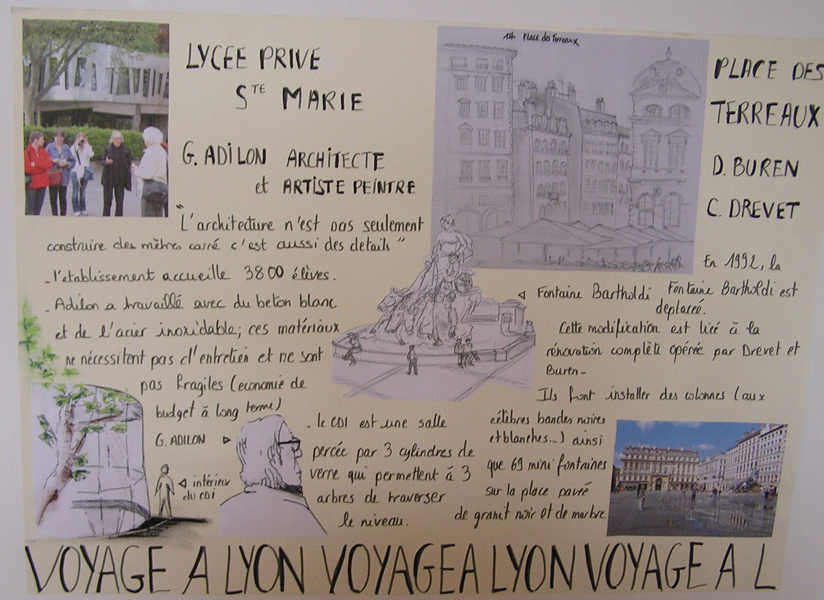 LYCEE PRIVE
STE MARIE
G. ADILON ARCHITECTE
et ARTISTE PEINTRE
"L'architecture n'est pas seulement
construire des mètres carré c'est aussi des details"
- l'etablissement accueille 3800 élèves.
- Adilon a travaillé avec du beton blanc
et de l'acier inoxidable; ces matériaux
ne nécessitent pas d'entretien et ne sont
pas fragiles (economie de
budget à long terme)
G. ADILON
intérieur
du CDI
- le CDI est une salle
percée par 3 cylindres de
verre qui permettent à 3
arbres de traverser
le niveau.
Place des Terreaux
PLACE DES
TERREAUX
D. BUREN
C. DREVET
Fontaine Bartholdi
En 1992, la
Fontaine Bartholdi est
deplacée.
Cette modification est liée à la
rénovation complète opérée par Drevet et
Buren-
Ils font installer des colonnes (aux
célèbres bandes noires
et blanches...) ainsi
que 69 mini fontaines
sur la place pavée
de granit noir et de marbre.
VOYAGE A LYON VOYAGE A LYON VOYAGE A L